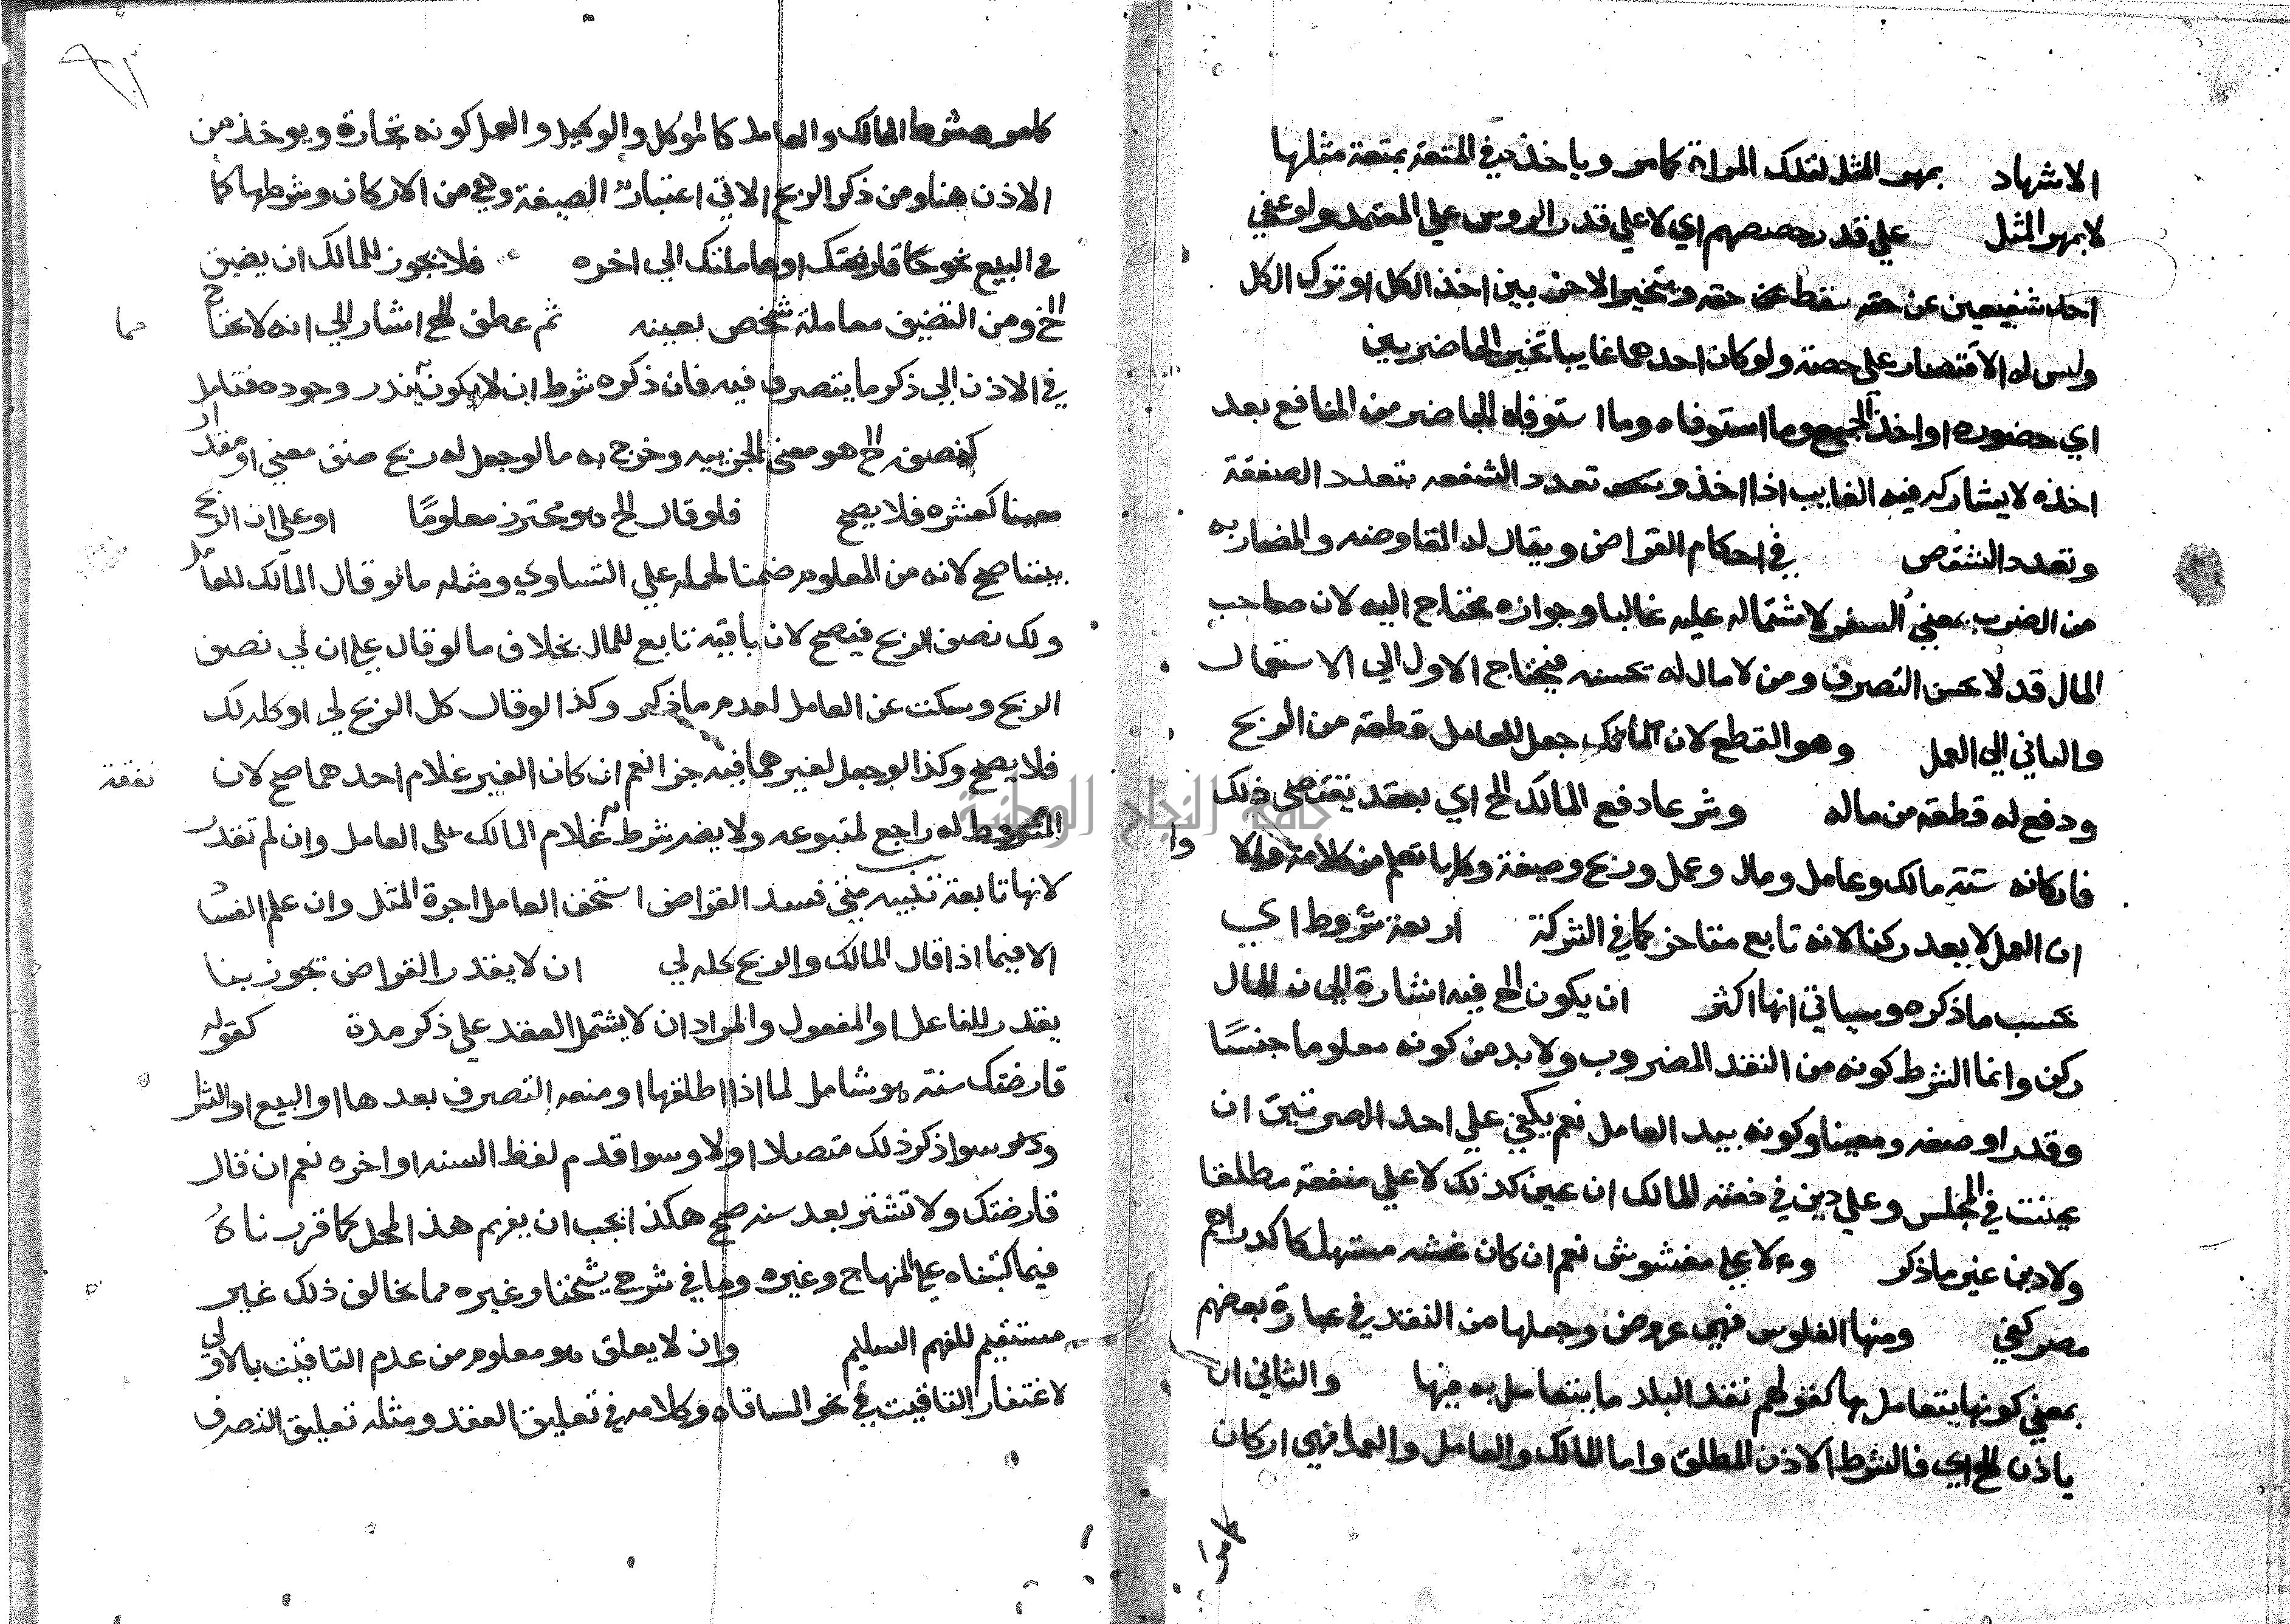 الاشهاد بمهر المثل لتلك المراة كامر وياخذ في المتعة بمتعة مثلها
لا بمهر المثل علي قدر حصصهم اي لا علي قدر الروس علي المعتمد ولو عفي
احد شفيعين عن حقه سقط حقه وتخير الاخر بين اخذ الكل او ترك الكل
وليس له الاقتصار علي حصته ولو كان احدهما غايبا تخير الحاضر بين
اي حضوره او اخذ الجميع وما استوفاه الحاضر من المنافع بعد
اخذه لا يشاركه فيه الغايب اذا اخذ وتعدد الشفعه بتعدد الصفقة
وتعدد الشقص في احكام القراض ويقال له المقارضه والمضاربه
من الضرب بمعني السفر لاشتماله عليه غالبا وجوازه محتاج اليه لان صاحب
المال قد لا يحسن التصرف ومن لا مال له يحسنه فيحتاج الاول الي الاستعمال
والثاني الي العمل وهو القطع لان المالك جعل للعامل قطعة من الربح
ودفع له قطعة من ماله وشرعا دفع المالك الخ اي بعقد يقتضي ذلك
فاركانه ستة مالك وعامل ومال وعمل وربح وصيغة وكلها تعلم من كلامه والا
وا
ان العمل لا يعد ركنا لانه تابع متاخر كما في الشركة اربعة شروط اي
بحسب ما ذكره وسياتي انها اكثر ان يكون الخ فيه اشارة الي ان المال
ركن وانما الشرط كونه من النقد المضروب ولا بد من كونه معلوما جنسًا
وقدرا وصفه ومعينا وكونه بيد العامل نعم يكفي علي احد الصرتين ان
عينت في المجلس وعلي دين في ذمة المالك ان عين كذلك لا علي منفعة مطلقا
ولا دين غير ما ذكر ولا علي مغشوش نعم ان كان غشه مستهلكا كدراهم
مصر كفي ومنها الفلوس فهي عروض وجعلها من النقد في عبارة بعضهم
بمعني كونها يتعامل بها كقولهم نقد البلد ما يتعامل به فيها والثاني ان
ياذن الخ اي فالشرط الاذن المطلق واما المالك والعامل والعمل فهي اركان
كامر
كامر وشرط المالك والعامل كالموكل والوكيل والعمل كونه تجارة ويوخذ من
الاذن هنا ومن ذكر الربح الاتي اعتبار الصيغة وهي من الاركان وشرطها كما
في البيع نحو قارضتك او عاملتك الي اخره فلا يجوز للمالك ان يضيق
الخ ومن التضيق معاملة شخص بعينه ثم عطف الخ اشار الي انه لا يحتاج
في الاذن الي ذكر ما يتصرف فيه فان ذكره شرط ان لا يكون يندر وجوده فتامل
كنصف الخ هو معني الجزييه وخرج به ما لو جعل له ربح صنف معين او مقدار
معينا كعشره فلا يصح فلو قال الخ هو محترز معلومًا او علي ان الربح
بيننا صح لانه من المعلوم ضمنا لحمله علي التساوي ومثله ما لو قال المالك للعامل
ولك نصف الربح فيصح لان باقيه تابع للمال بخلاف ما لو قال علي ان لي نصف
الربح وسكت عن العامل لعدم ما ذكر وكذا لو قال كل الربح لي او كله لك
فلا يصح وكذا لو جعل لغيرهما فيه جزا نعم ان كان الغير غلام احدهما صح لان
نفقة
المشروط له راجع لمتبوعه ولا يضر شرط غلام المالك علي العامل وان لم تقدر
لانها تابعة تنبيه متي فسد القراض استحق العامل اجرة المثل وان علم الفساد
الا فيما اذا قال المالك والربح كله لي ان لا يقدر القراض تجوز بنا
يقدر للفاعل او المفعول والمراد ان لا يشتمل العقد علي ذكر مدة كقوله
قارضتك سنة هو شامل لما اذا اطلقها او منعه التصرف بعدها او البيع او الشرا
وسوا ذكر ذلك متصلا اولا وسوا قدم لفظ السنه او اخره نعم ان قال
قارضتك ولا تشتر بعد سنه صح هكذا يجب ان يفهم هذا المحل كما قررناه
فيما كتبناه علي المنهاج وغيره وما في شرح شيخنا وغيره مما يخالف ذلك غير
مستقيم للفهم السليم وان لا يعلق هو معلوم من عدم التاقيت بالاولي
لاغتفار التاقيت في نحو المساقاه وكلامه في تعليق العقد ومثله تعليق التصرف
جامعة النجاح الوطنية